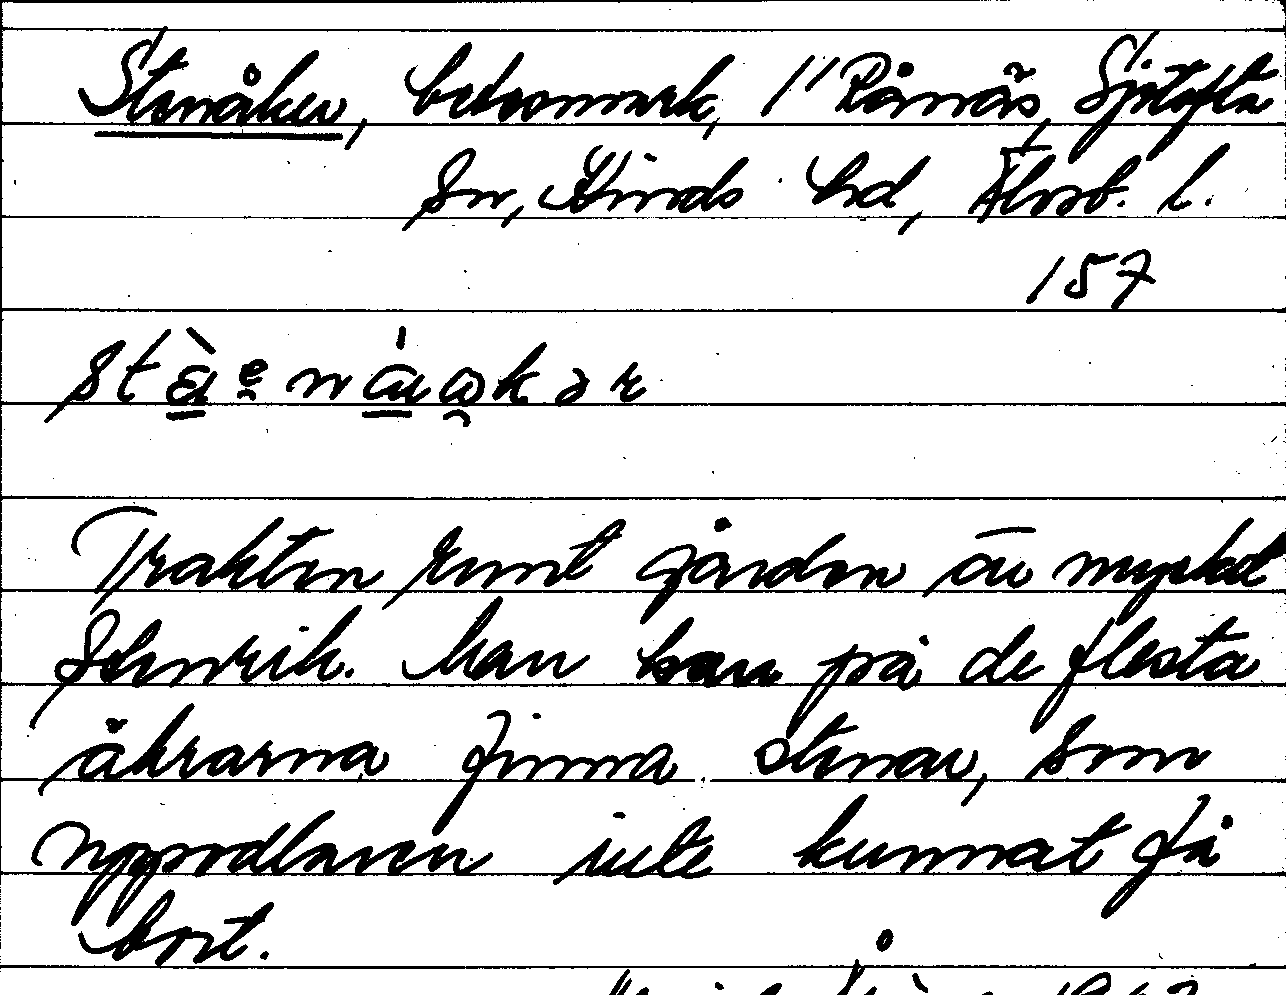 Stenåker, betesmark, 1/1 Rånnäs, Sjötofta
sn, Kinds hd, Älvsb. l.
157
Trakten runt gården är mycket
stenrik. Man kan på de flesta
åkrarna finna stenar, som
uppodlaren inte kunnat få
bort.